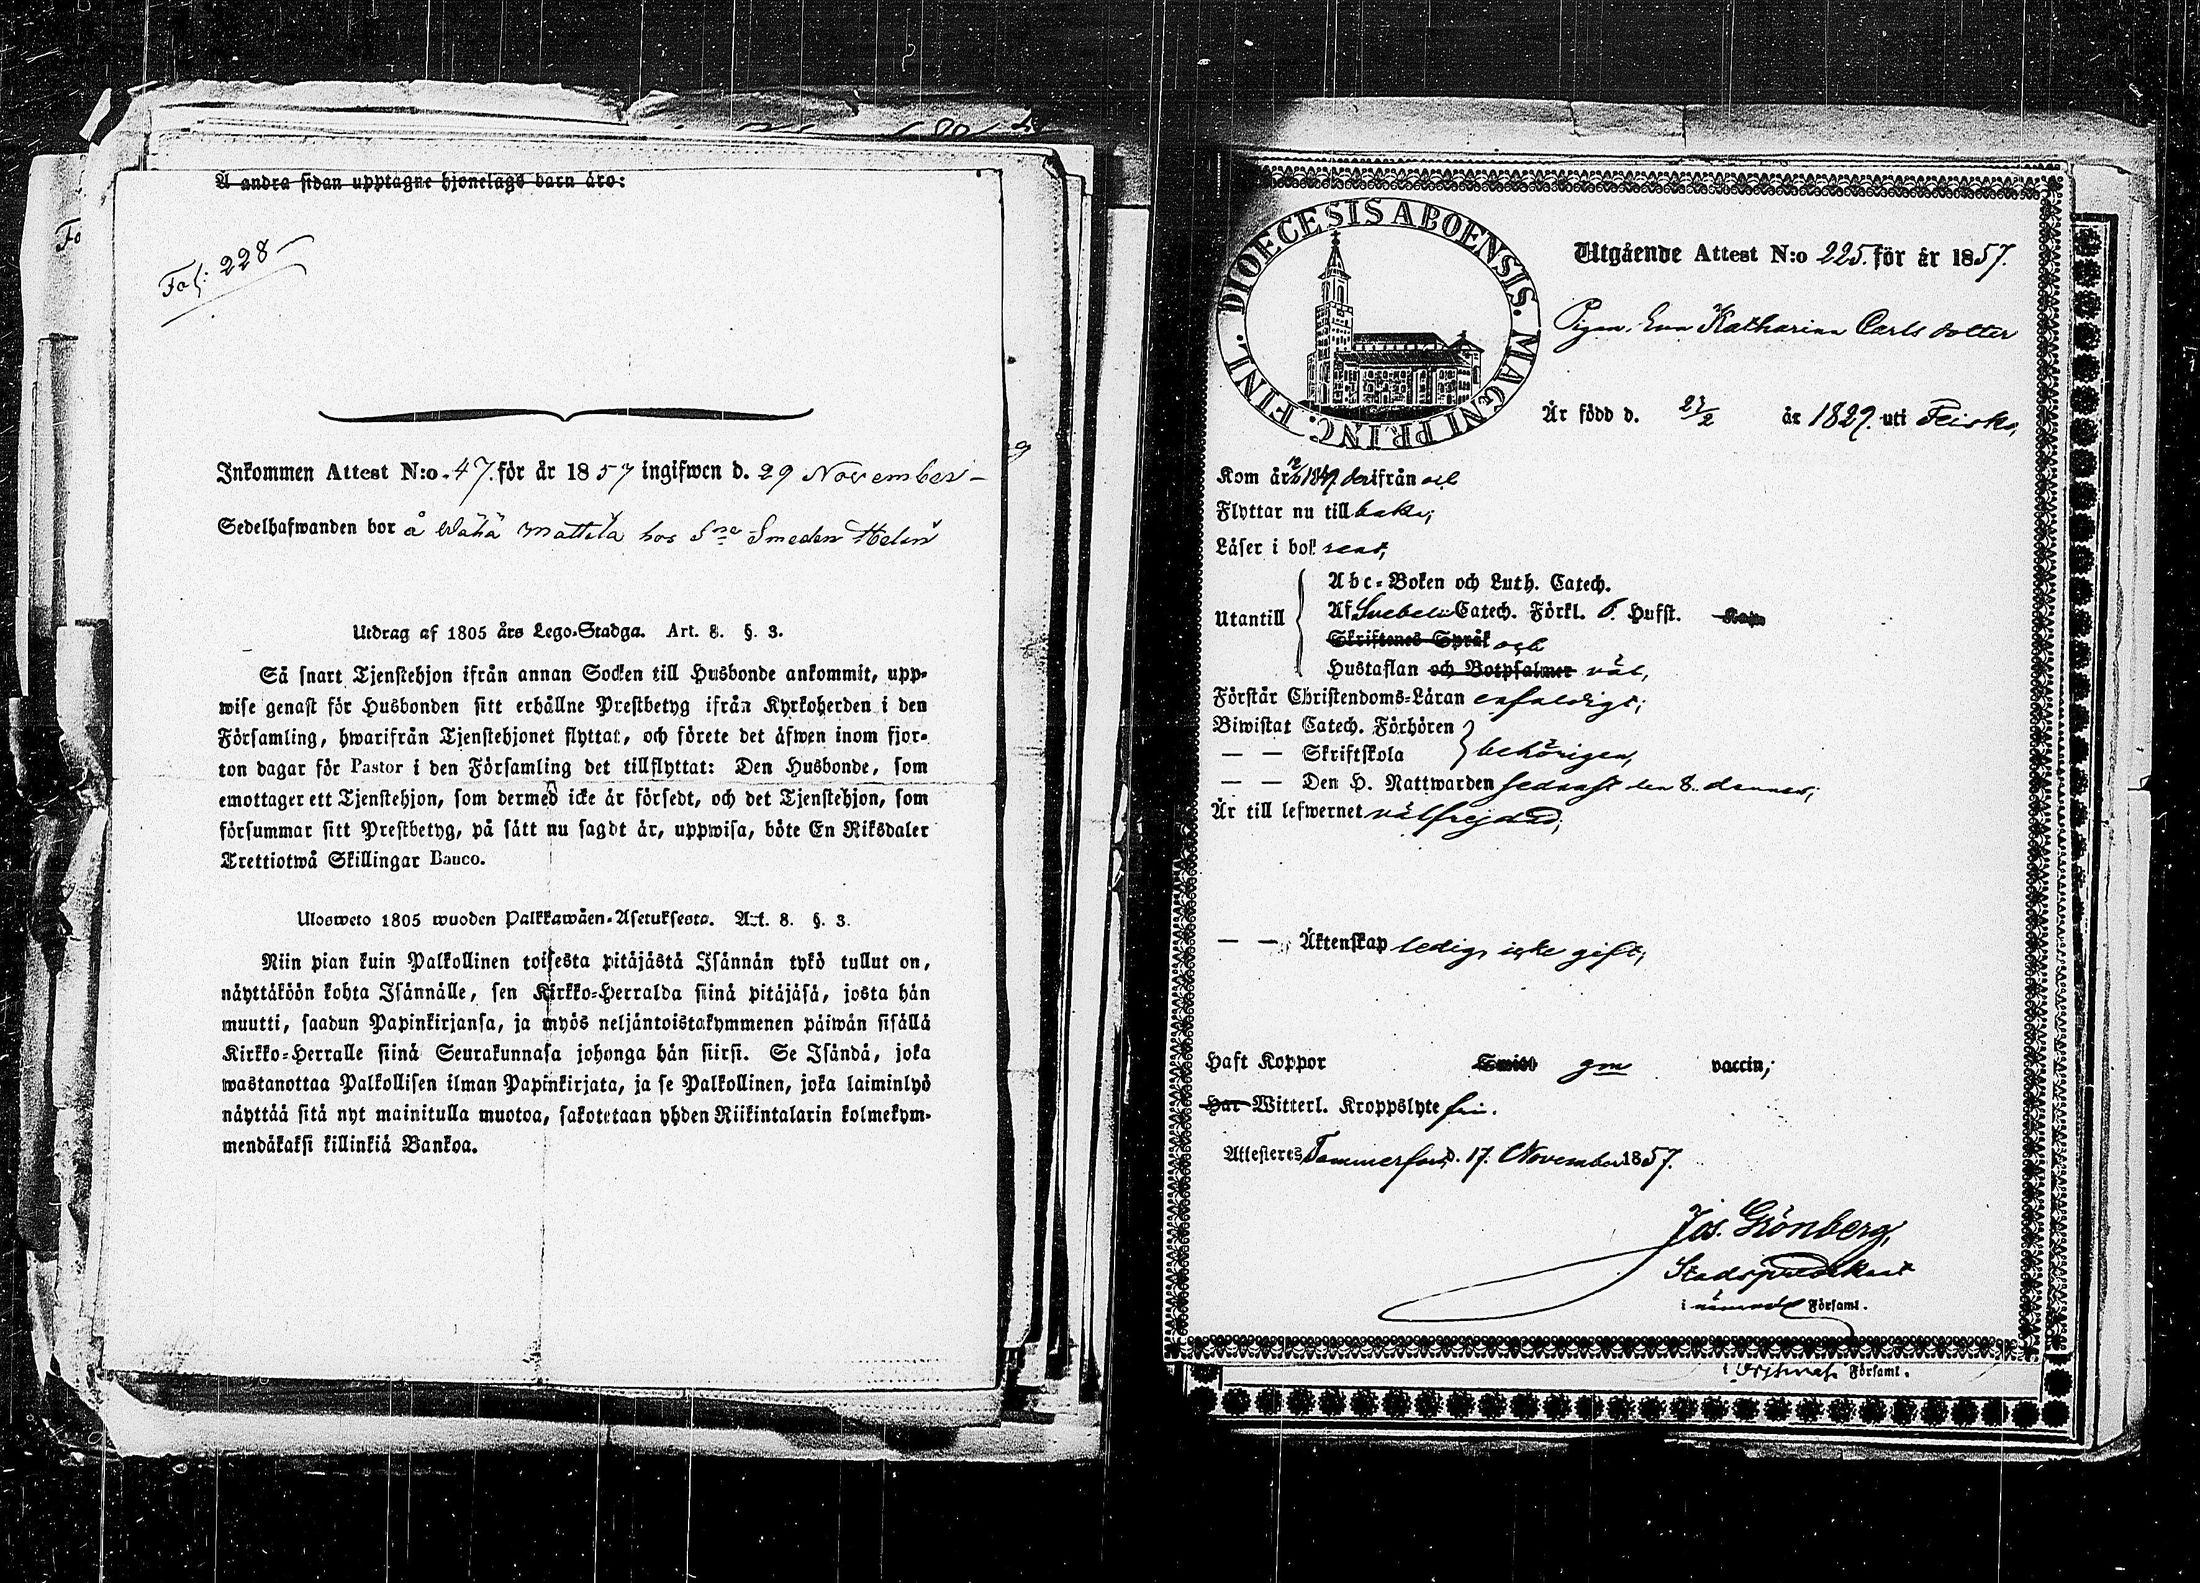 Å andra sidan upptagne hjonelags barn äro:
Fol: 228
Inkommen Attest N:o 47. för år 1857 ingifwen d. 29 November
Sedelhafwanden bor å Wähä Mattila hos Smeden Helin
Utdrag af 1805 års Lego-Stadga. Art. 8. §. 3.
Så snart Tjenstehjon ifrån annan Socken till Husbonde ankommit, upp-
wise genast för Husbonden sitt erhållne Prestbetyg ifrån Kyrkoherden i den
Församling, hwarifrån Tjenstehjonet flyttat, och förete det äfwen inom fjor-
ton dagar för Pastor i den Församling det tillflyttat: Den Husbonde, som
emottager ett Tjenstehjon, som dermed icke är försedt, och det Tjenstehjon, som
försummar sitt Prestbetyg, på sätt nu sagdt är, uppwisa, böte En Riksdaler
Trettiotwå Skillingar Banco.
Ulosweto 1805 wuoden Palkkawäen-Asetuksesta. Art. 8. §. 3.
Niin pian kuin Palkollinen toisesta pitäjästä Isännän tykö tullut on,
näyttäköön kohta Isännälle, sen Kirkko-Herralda siinä pitäjäsä, josta hän
muutti, saadun Papinkirjansa, ja myös neljäntoistakymmenen päiwän sisällä
Kirkko-Herralle siinä Seurakunnasa johonga hän siirsi. Se Isändä, joka
wastanottaa Palkollisen ilman Papinkirjata, ja se Palkollinen, joka laiminlyö
näyttää sitä nyt mainitulla muotoa, sakotetaan yhden Riikintalarin kolmekym-
mendäkaksi killinkiä Bankoa.
DIOECESIS ABOENSIS. MAGNI PRINC. FINL.
Utgående Attest N:o 225. för år 1857.
Pigan Eva Katharina Carlsdotter
Är född d. 27/2 år 1829. uti Teisko,
Kom år 12/12 1849 derifrån och
Flyttar nu tillbaka;
Läser i bok rent,
Utantill
Abc-Boken och Luth. Catech.
Af Svebelii Catech. Förkl. 5. Hufst.
Skriftenes Språk och
Hustaflan och Botpsalmer väl,
Förstår Christendoms-Läran enfaldigt;
Biwistat Catech. Förhören
— — Skriftskola behörigen,
— — Den H. Nattwarden sednast den 8. dennes;
Är till lefwernet välfrejdad;
— — Äktenskap ledig, icke gift;
Haft Koppor gm vaccin;
Har Witterl. Kroppslyte fri.
Attesteres Tammerfors d. 17. November 1857.
Jos. Grönberg,
Stadspredikant
i nämnde Församl.
i Församl.